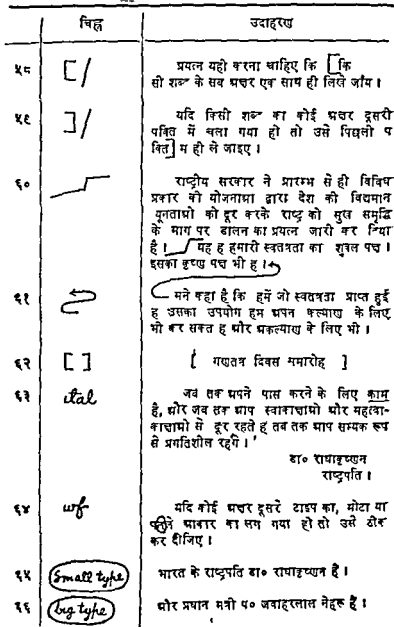 चिह्न उदाहरण
५८ [/ प्रयत्न यही करना चाहिए कि [कि
सी शब्द के सब अक्षर एक साथ ही लिखे जाँय।
५९ ]/ यदि किसी शब्द का कोई अक्षर दूसरी
पक्ति में चला गया हो तो उसे पिछली प
क्ति] म ही ले जाइए।
६० राष्ट्रीय सरकार ने प्रारम्भ से ही विविध
प्रकार की योजनाओ द्वारा देश की विद्यमान
यूनताओ को दूर करके राष्ट्र को सुख समृद्धि
के माग पर डालन का प्रयत्न जारी कर दिया
है। यह ह हमारी स्वतत्रता का शुक्ल पक्ष।
इसका कृष्ण पक्ष भी ह।
६१ मने कहा है कि हमें जो स्वतत्रता प्राप्त हुई
ह उसका उपयोग हम अपन कल्याण के लिए
भी कर सकत ह और अकल्याण के लिए भी।
६२ [ ] [ गणतत्र दिवस समारोह ]
६३ ital जब तक अपने पास करने के लिए काम
है, और जब तक आप स्वाकाक्षाओ और महत्वा-
काक्षाओ से दूर रहते ह तब तक आप सम्यक रूप
से प्रगतिशील रहगे।'
डा० राधाकृष्णन
राष्ट्रपति।
६४ wf यदि कोई अक्षर दूसरे टाइप का, मोटा या
पतले आकार का लग गया हो तो उसे ठीक
कर दीजिए।
६५ (small type) भारत के राष्ट्रपति डा० राधाकृष्णन है।
६६ (big type) और प्रधान मत्री प० जवाहरलाल नेहरू है।